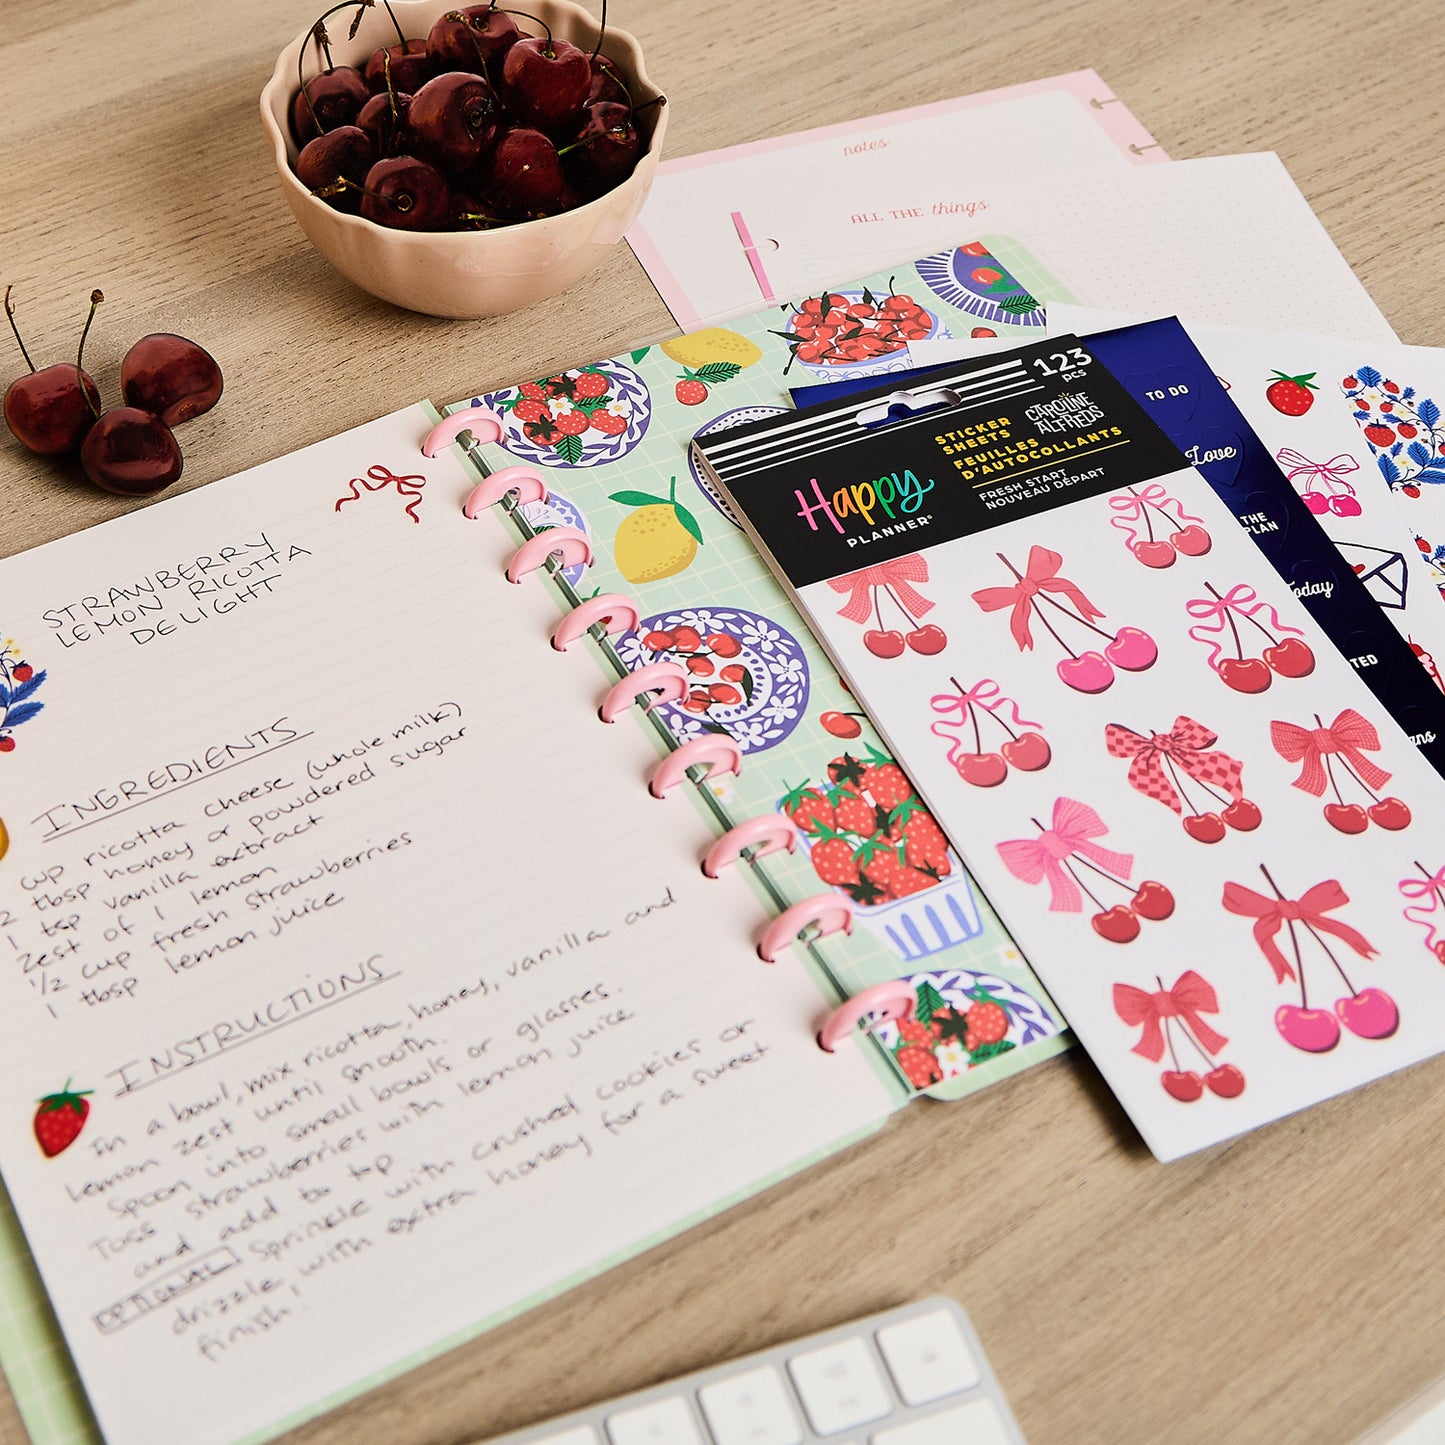 STRAWBERRY
LEMON RICOTTA
DELIGHT
INGREDIENTS
cup ricotta cheese (whole milk)
2 tbsp honey or powdered sugar
1 tsp vanilla extract
Zest of 1 lemon
1/2 cup fresh strawberries
1 tbsp lemon juice
INSTRUCTIONS
In a bowl, mix ricotta, honey, vanilla and
lemon zest until smooth.
Spoon into small bowls or glasses.
Toss strawberries with lemon juice
and add to top
OPTIONAL Sprinkle with crushed cookies or
drizzle, with extra honey for a sweet
finish!
notes
ALL THE things
123
pcs
STICKER
SHEETS
FEUILLES
D'AUTOCOLLANTS
CAROLINE
ALFREDS
FRESH START
NOUVEAU DÉPART
Happy
PLANNER®
TO DO
Love
THE
PLAN
Today